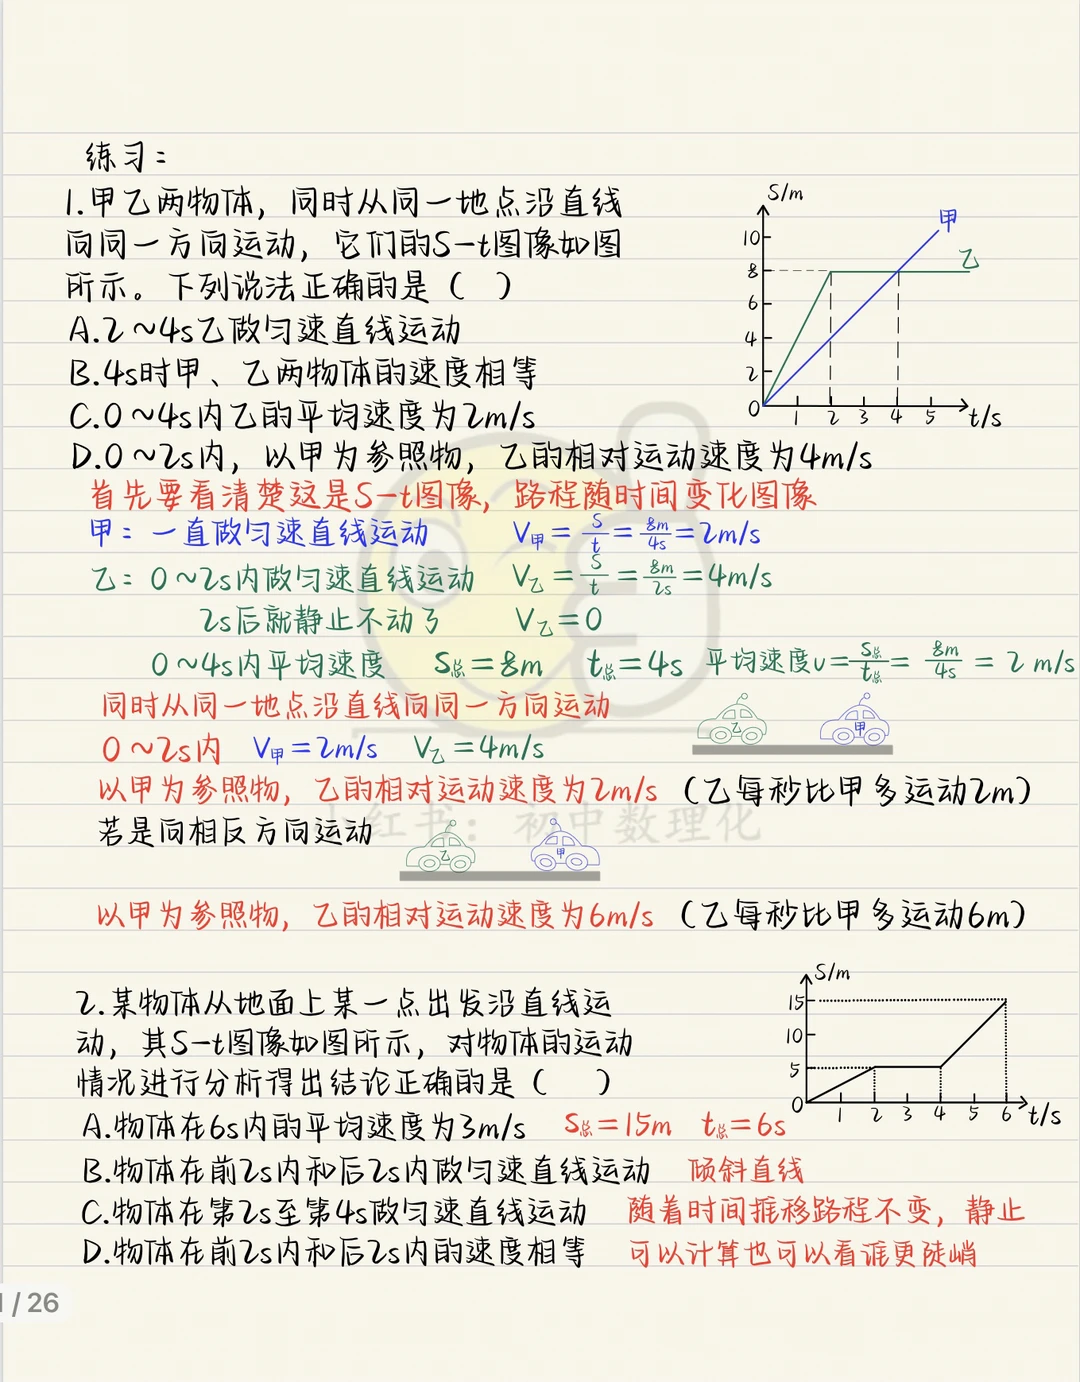 练习：
1.甲乙两物体，同时从同一地点沿直线
向同一方向运动，它们的S-t图像如图
所示。下列说法正确的是（ ）
A.2~4s乙做匀速直线运动
B.4s时甲、乙两物体的速度相等
C.0~4s内乙的平均速度为2m/s
D.0~2s内，以甲为参照物，乙的相对运动速度为4m/s
S/m
甲
乙
10
8
6
4
2
0
1 2 3 4 5 t/s
首先要看清楚这是S-t图像，路程随时间变化图像
甲：一直做匀速直线运动 V甲=S/t=8m/4s=2m/s
乙：0~2s内做匀速直线运动 V乙=S/t=8m/2s=4m/s
2s后就静止不动了 V乙=0
0~4s内平均速度 S总=8m t总=4s 平均速度v=S总/t总=8m/4s=2m/s
同时从同一地点沿直线向同一方向运动
乙 甲
0~2s内 V甲=2m/s V乙=4m/s
以甲为参照物，乙的相对运动速度为2m/s（乙每秒比甲多运动2m）
小红书：初中数理化
若是向相反方向运动
乙 甲
以甲为参照物，乙的相对运动速度为6m/s（乙每秒比甲多运动6m）
2.某物体从地面上某一点出发沿直线运
动，其S-t图像如图所示，对物体的运动
情况进行分析得出结论正确的是（ ）
S/m
15
10
5
0
1 2 3 4 5 6 t/s
A.物体在6s内的平均速度为3m/s S总=15m t总=6s
B.物体在前2s内和后2s内做匀速直线运动 倾斜直线
C.物体在第2s至第4s做匀速直线运动 随着时间推移路程不变，静止
D.物体在前2s内和后2s内的速度相等 可以计算也可以看谁更陡峭
/ 26